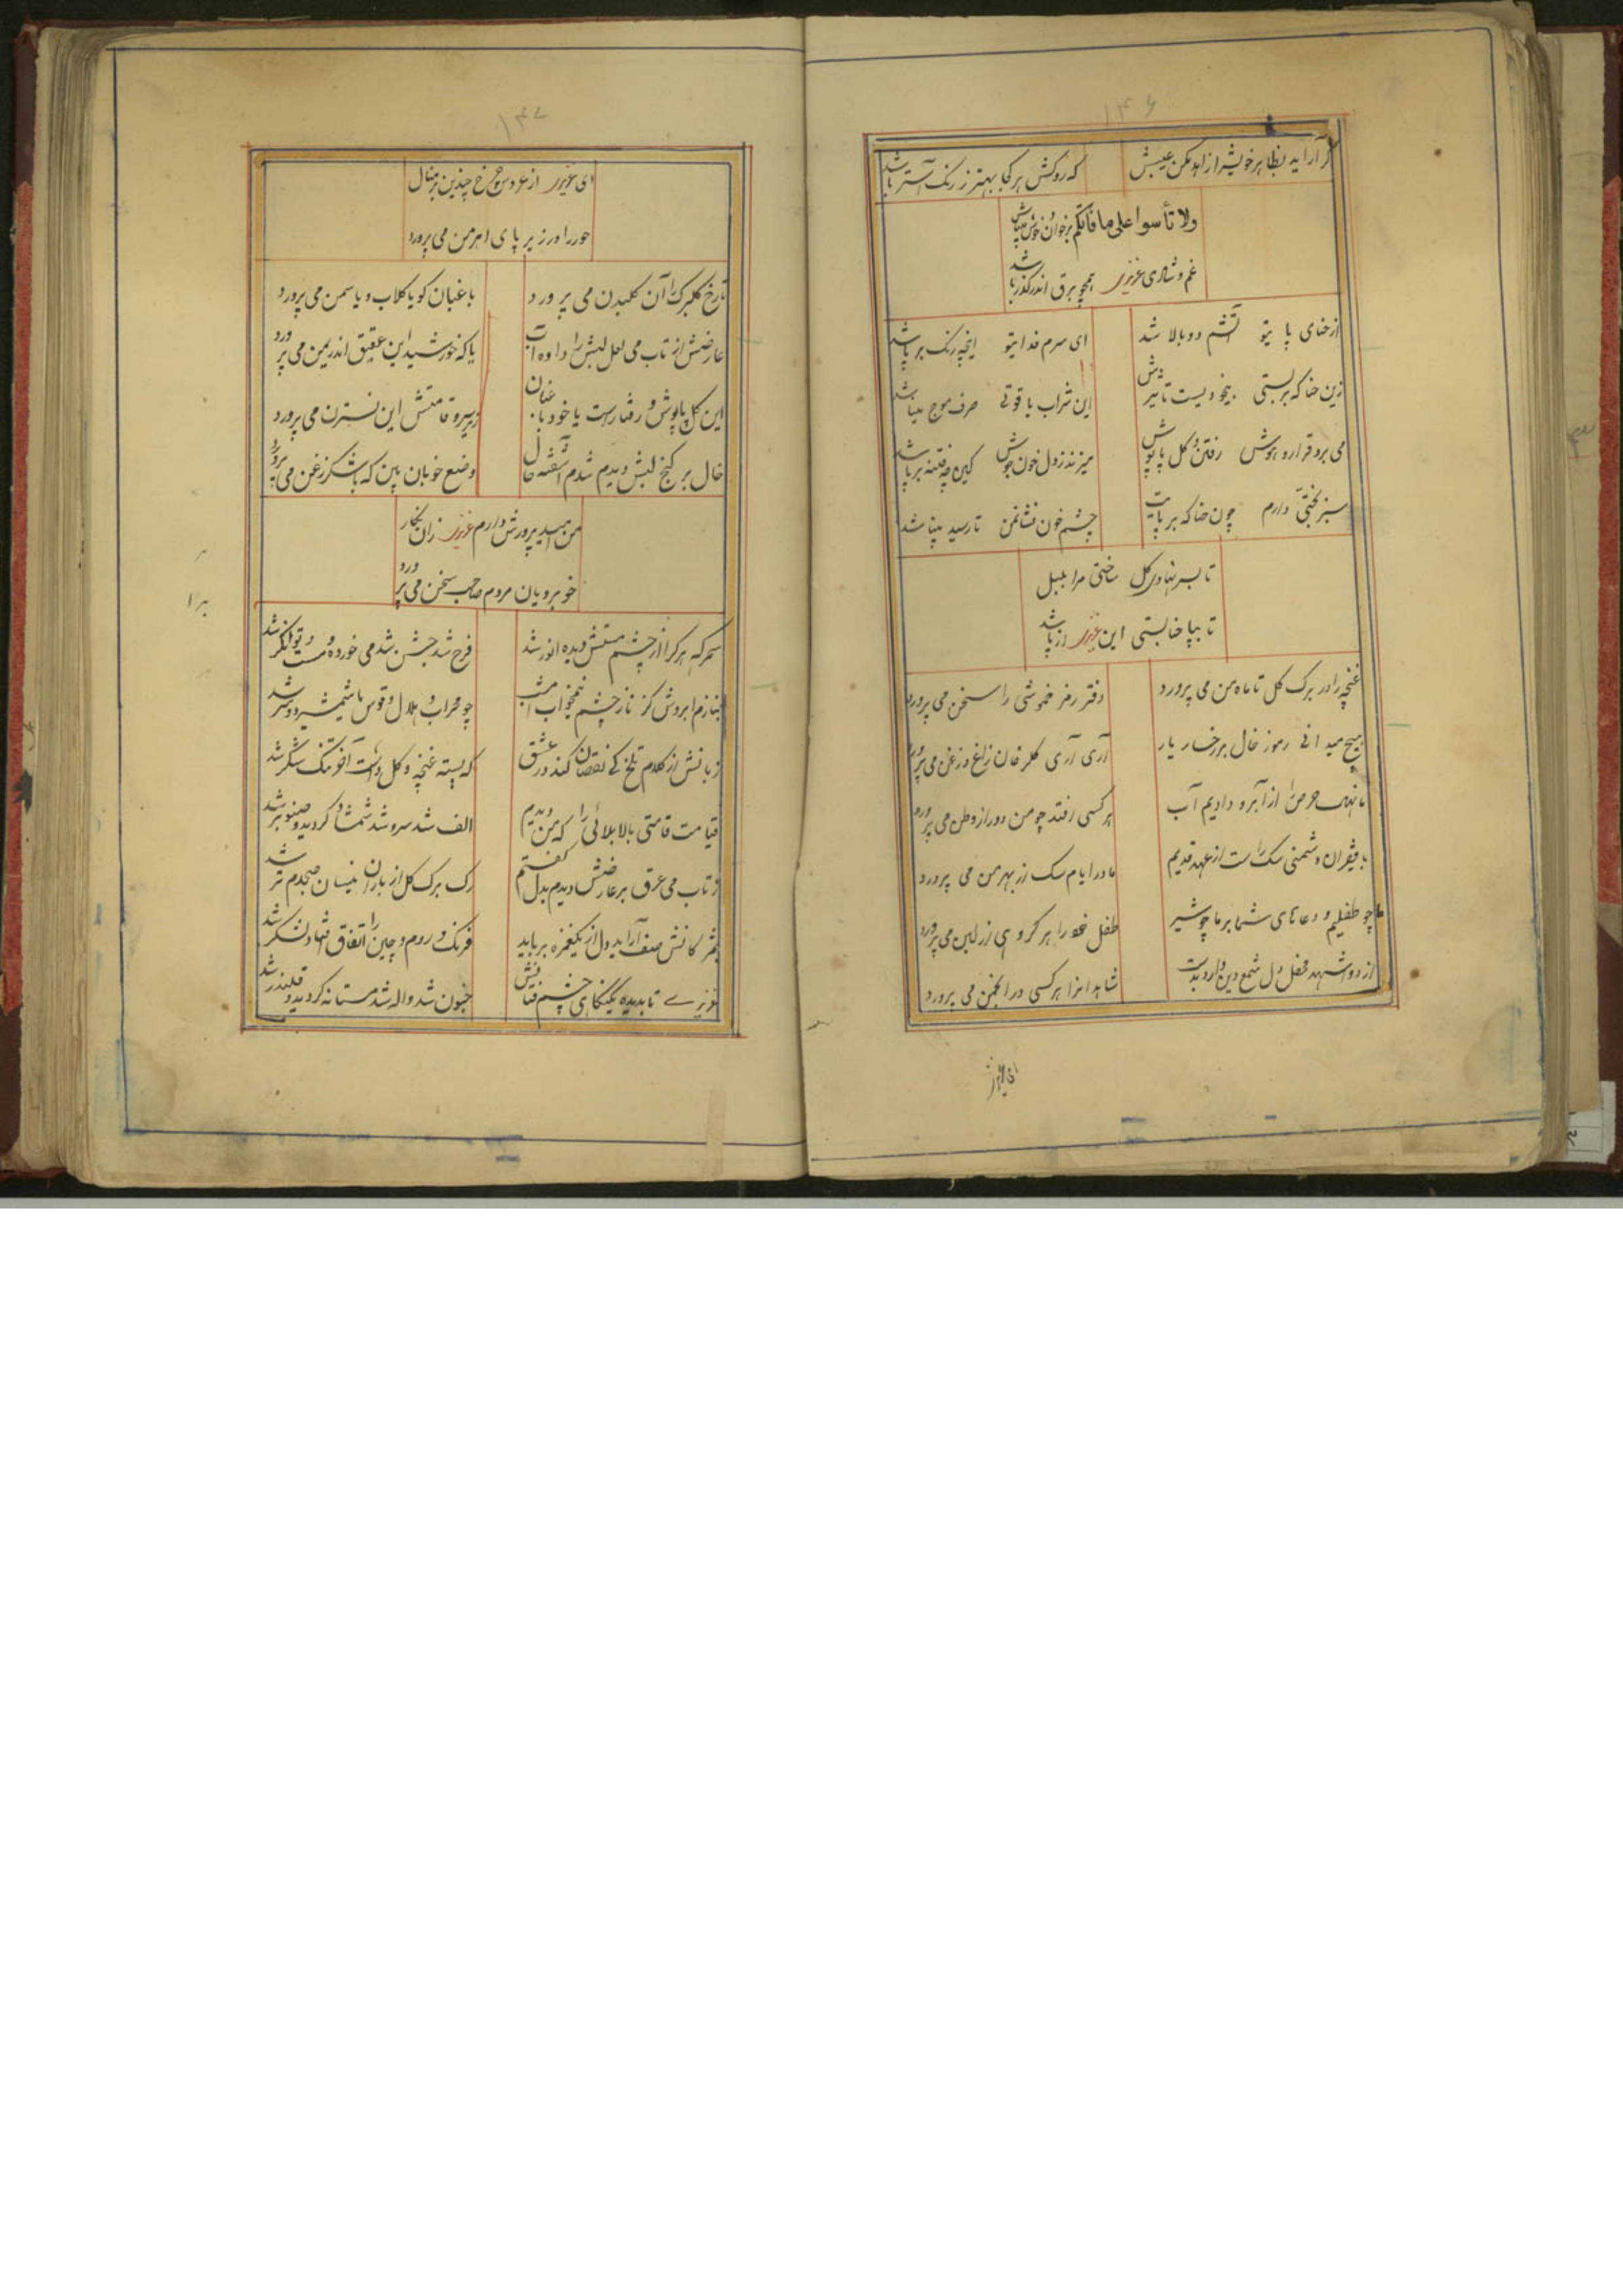 ۱۴۶
گر آراید بظاهر خویش را زاهد مکن عیبش
که روکش هر کجا بهتر ز رنگ آستر باشد
ولا تأسوا علی ما فاتکم برخوان و خوش میباش
غم و شادی عزیز همچو برق اندر گذر باشد
از حنای پا یتو آتشم دو بالا شد
ای سرم فدایتو اینچه رنگ بر پا شد
زین حنا که بر بستی بیخودیست تاثیرش
این شراب یاقوتی صرف موج مینا شد
می برد قرار و هوش رفتن گل پاپوش
میزند ز دل خون جوش کین چه فتنه بر پا شد
سبز بختی دارم چون حنا که بر پایت
چشم خون فشانمن تا رسید بینا شد
تا بسر نهادی گل ساختی مرا بلبل
تا بپا حنا بستی این عزیز از پا شد
غنچه را در برگ گل تا ماه من می پرورد
دفتر رمز خموشی را سخن می پرورد
هیچ میدانی رموز خال بر رخسار یار
آری آری گلرخان زاغ و زغن می پرورد
ما نهال حرص را از آبرو دادیم آب
هر کسی رفتد چو من دور از وطن می پرورد
با فقیران دشمنی سگ راست از عهد قدیم
مادر ایام سگ از بهر من می پرورد
ما چو طفلیم و دعاهای شما بر ما چو شیر
طفل خود را هر گروهی از لبن می پرورد
از دو شهد محفل دل شمع دین دارد بدست
شاهد انرا هر کسی در انجمن می پرورد
۱۴۷
ای عزیز از عروس چرخ چندین بر منال
حور را در زیر پای اهرمن می پرورد
تا رخ گلبرگ را آن گلبدن می پرورد
باغبان گویا گلاب و یاسمن می پرورد
عارضش از تاب می لعل لبش را داده آب
یا که خورشید این عقیق اندر یمن می پرورد
این گل پاپوش و رفتارست یا خود باغبان
زیر سرو قامتش این نسترن می پرورد
خال بر کنج لبش دیدم شدم آشفته حال
وضع خوبان بین که با شکر زغن می پرورد
من امید پرورش دارم عزیز زان نگار
خوبرویان مردم صاحب سخن می پرورد
سحرگه هر کرا از چشم مستش دیده انور شد
فرح شد جشن شد می خورد و مست و توانگر شد
بنازم ابروش کز ناز چشم نیمخواب امشب
چو محراب و هلال و قوس با شمشیر و سر شد
زبانش از کلام تلخ کی نقصان کند در عشق
که پسته غنچه و گل داشت آخر تنگ شکر شد
قیامت قامتی بالا بلائی را که من دیدم
الف شد سرو شد شمشاد گردید و صنوبر شد
ز تاب می عرق بر عارضش دیدم بدل گفتم
رگ برگ گل از باران نیسان صبحدم تر شد
بمژگانش صف آراید دل از یکغمزه برباید
فرنگ و روم و چین را اتفاق افتاد و لشکر شد
عزیزی تا بدیده یکنگاهی چشم فتانش
جنون شد واله شد مستانه گردید و قلندر شد